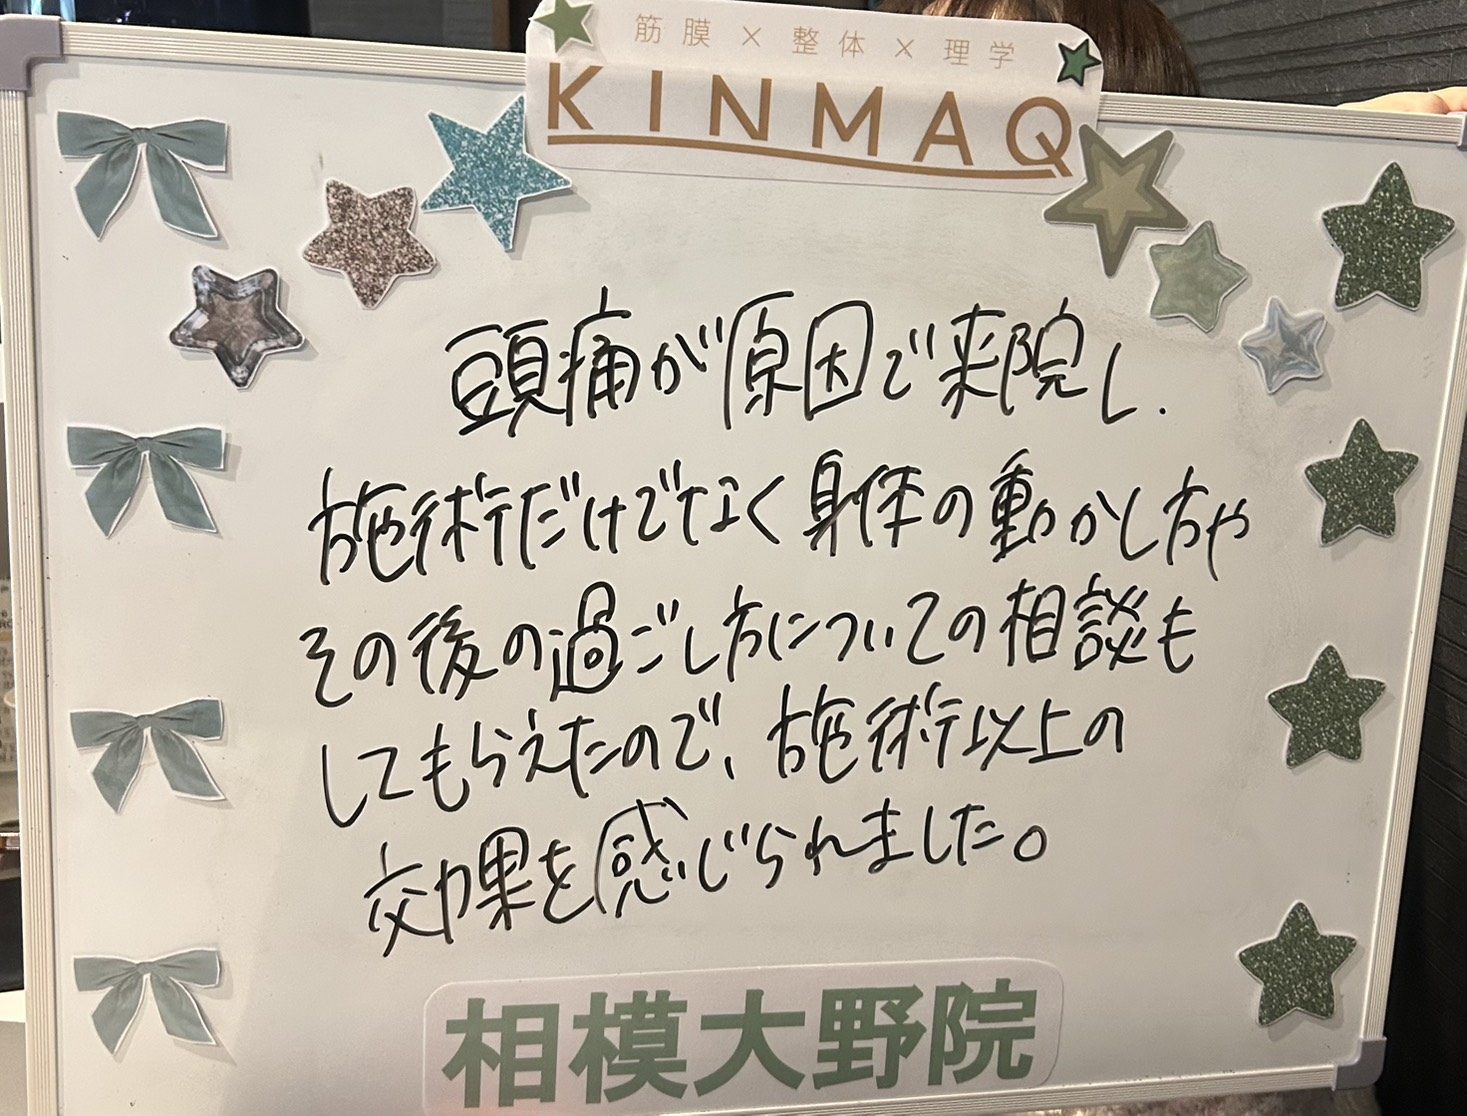 筋膜×整体×理学
KINMAQ
頭痛が原因で来院し、
施術だけでなく身体の動かし方や
その後の過ごし方についての相談も
してもらえたので、施術以上の
効果を感じられました。
相模大野院